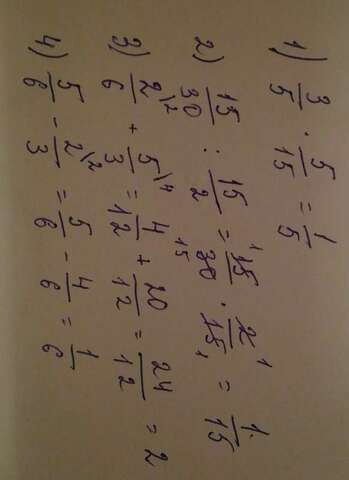 1) 3/5 · 5/15 = 1/5
2) 15/30 : 15/2 = 15/30 · 2/15 = 1/15
3) 2/6 + 5/3 = 4/12 + 20/12 = 24/12 = 2
4) 5/6 - 2/3 = 5/6 - 4/6 = 1/6